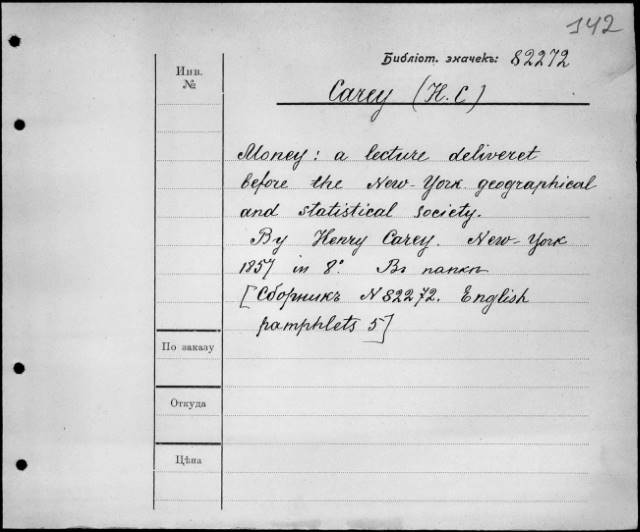 142
Библіот. значекъ: 82272
Инв.
№
Carey (H. C)
Money: a lecture deliveret
before the New-York geographical
and statistical society.
By Henry Carey. New-York
1857 in 8°. Въ папкѣ
[Сборникъ N 82272. English
pamphlets 5]
По заказу
Откуда
Цѣна